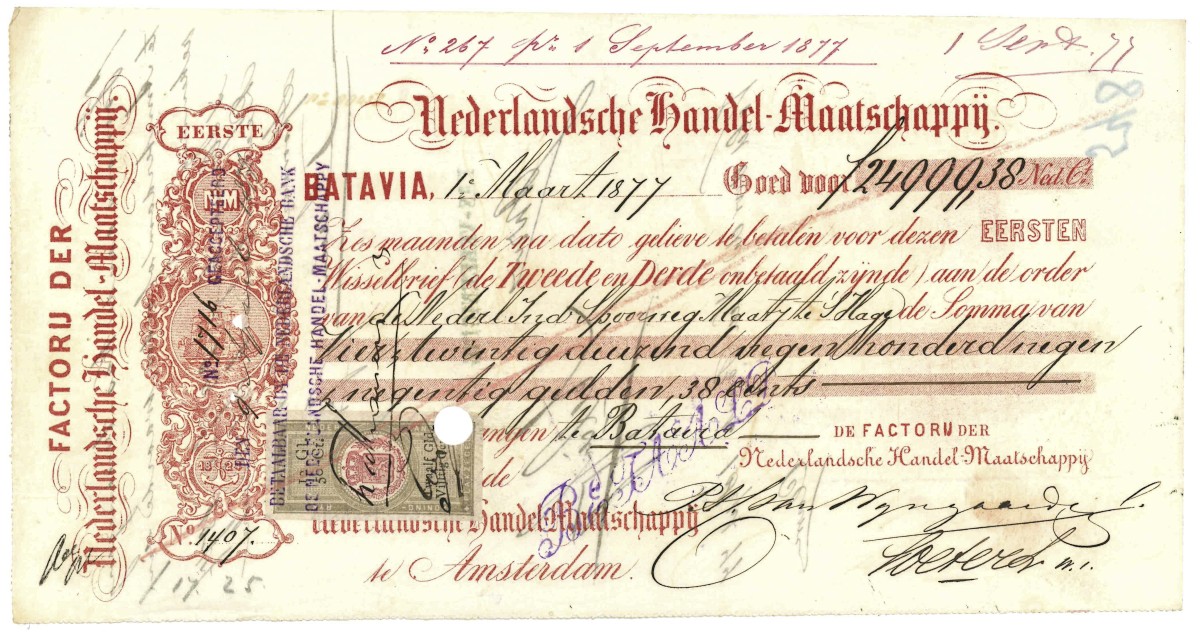 No. 267 pr. 1 September 1877
1 Sept. 77
248
Nederlandsche Handel-Maatschappij.
BATAVIA, 1e Maart 1877 Goed voor f 24999,38 Ned. Ct.
Zes maanden na dato gelieve te betalen voor dezen EERSTEN
Wisselbrief (de Tweede en Derde onbetaald zijnde) aan de order
van de Nederl. Ind. Spoorweg Maatij te 's Hage de Somma van
Vierentwintig duizend negen honderd negen
negentig gulden, 38 cents
te Batavia
DE FACTORIJ DER
Nederlandsche Handel-Maatschappij
de
Nederlandsche Handel Maatschappij
te Amsterdam.
BETAALD
FACTORIJ DER
Nederlandsche Handel-Maatschappij.
EERSTE
NHM
No. 1407.
No. 1716 GEACCEPTEERD
BETAALBAAR BIJ DE NEDERLANDSCHE BANK
DE NEDERLANDSCHE HANDEL-MAATSCHAPPY
17.25